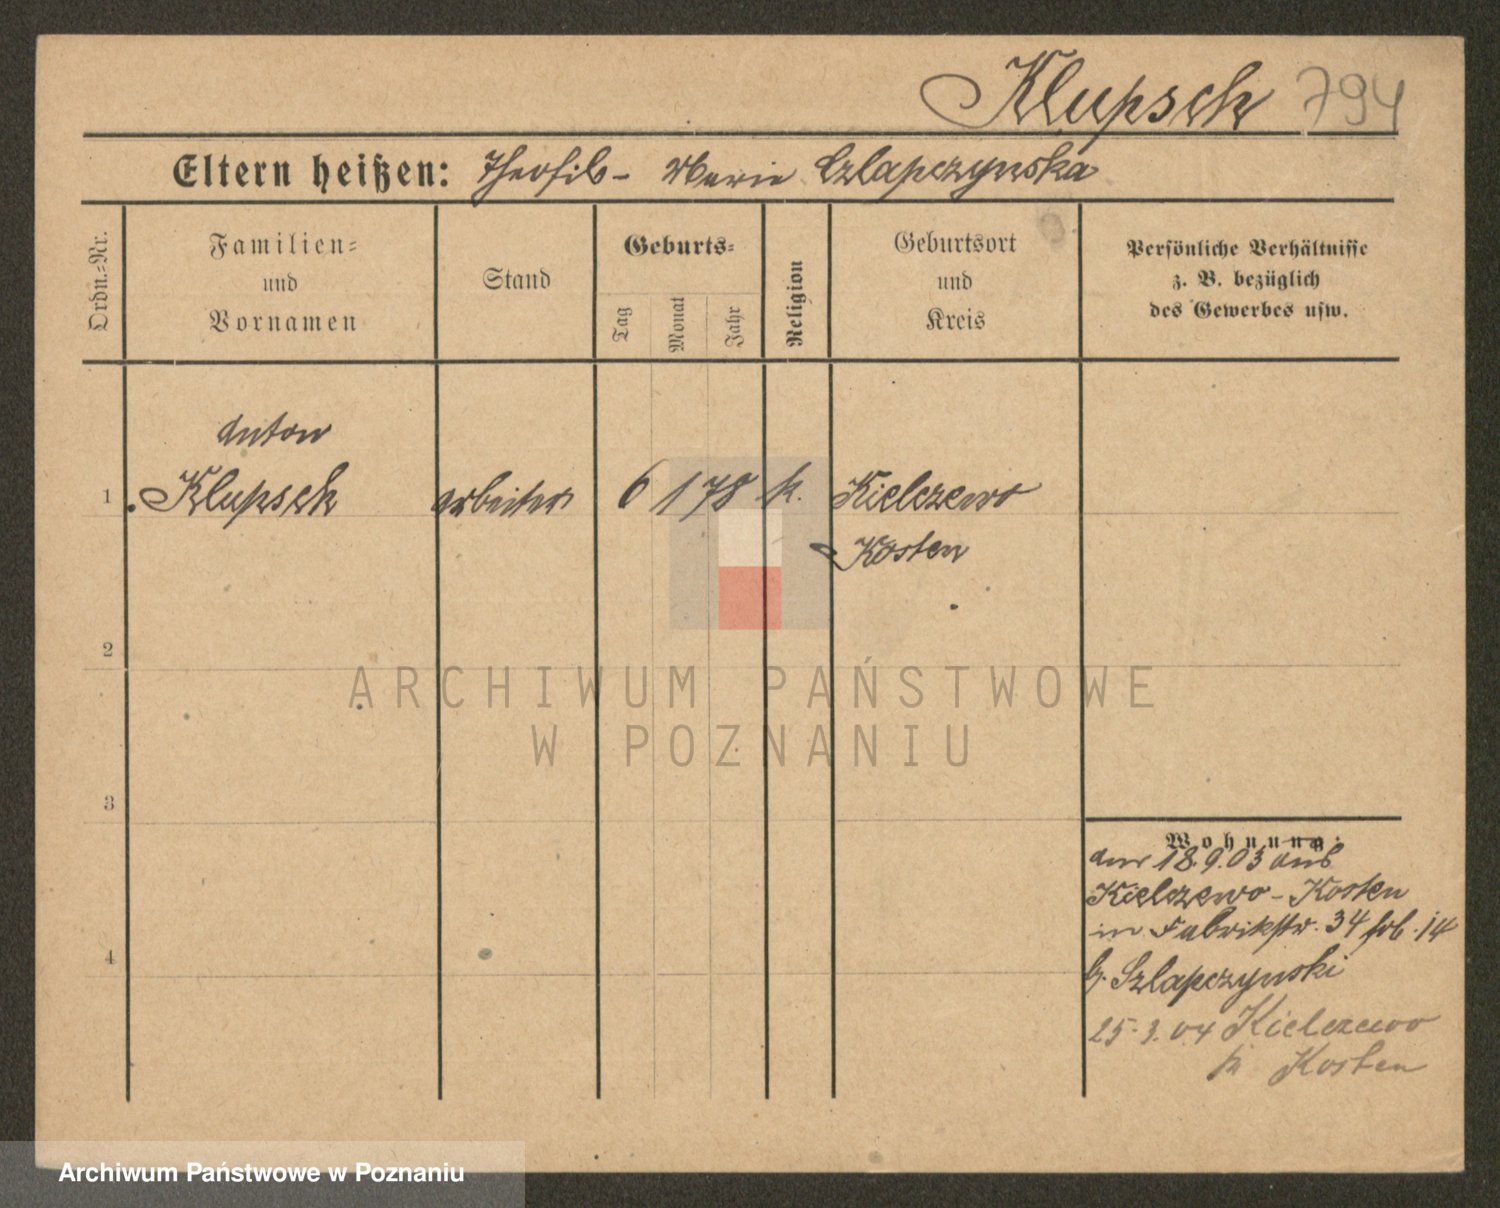 Klupsch 794
Eltern heißen: Theofil - Marie Szlapczynska
Ordn.=Nr.
Familien=
und
Vornamen
Stand
Geburts=
Tag
Monat
Jahr
Religion
Geburtsort
und
Kreis
Persönliche Verhältnisse
z. B. bezüglich
des Gewerbes usw.
Anton
1 Klupsch arbeiter 6 1 78 k. Kielczewo
Kosten
2
3
4
Wohnung:
am 18.9.03 aus
Kielczewo - Kosten
in Fabrikstr. 34 14
b. Szlapczynski
25.3.04 Kielczewo
Kosten
ARCHIWUM PAŃSTWOWE
W POZNANIU
Archiwum Państwowe w Poznaniu